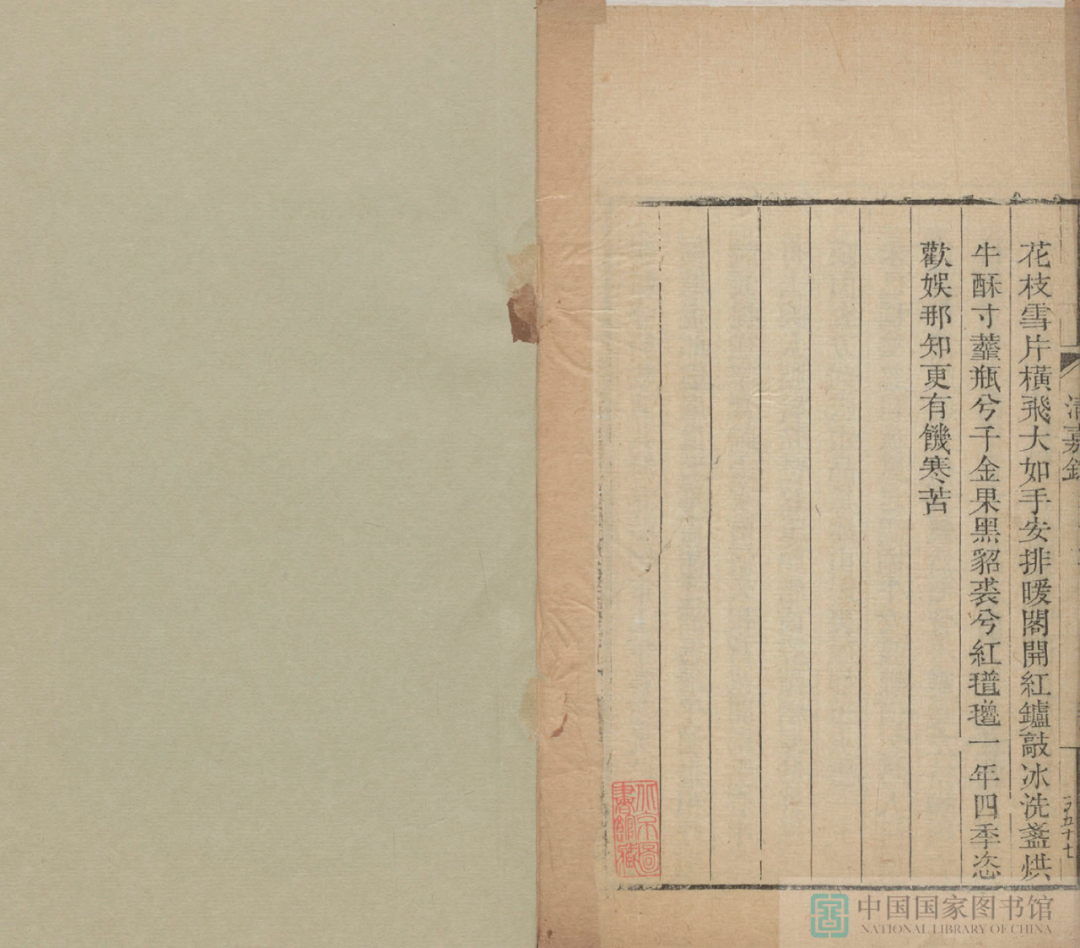 清嘉錄
花枝雪片橫飛大如手安排暖閣開紅鑪敲冰洗盞烘
牛酥寸蘸瓶兮千金果黑貂裘兮紅氍毹一年四季恣
歡娱那知更有饑寒苦
北京圖書館藏
中国国家图书馆
NATIONAL LIBRARY OF CHINA